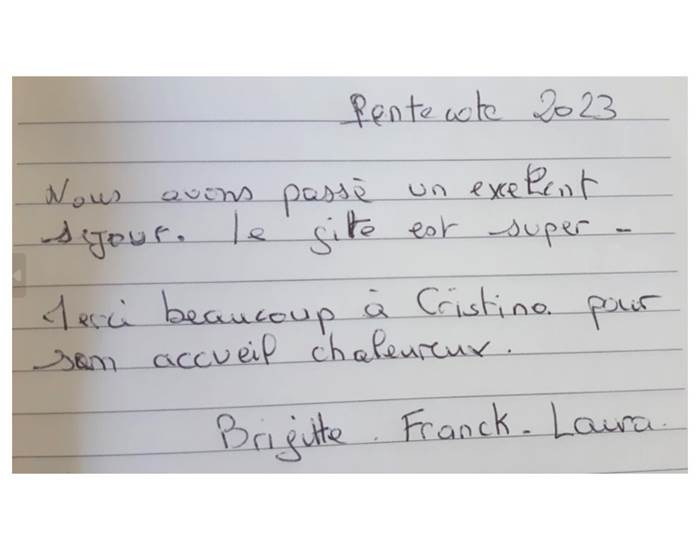 Pentecote 2023
Nous avons passé un exellent
séjour. le gite est super -
Merci beaucoup à Cristina pour
son accueil chaleureux.
Brigitte . Franck - Laura.